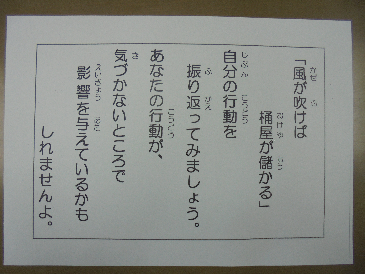 「風が吹けば
桶屋が儲かる」
自分の行動を
振り返ってみましょう。
あなたの行動が、
気づかないところで
影響を与えているかも
しれませんよ。